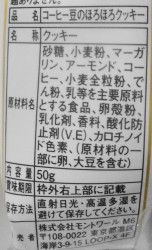 品名 コーヒー豆のほろほろクッキー
名称 クッキー
原材料名 砂糖、小麦粉、マーガ
リン、アーモンド、コーヒ
ー、小麦全粒粉、でん
粉、乳等を主要原料
とする食品、卵殻粉、
乳化剤、香料、酸化防
止剤(V.E)、カロチノイ
ド色素、(原材料の一
部に卵、大豆を含む)
内容量 50g
賞味期限 枠外右上部に記載
保存方法 直射日光・高温多湿を
避けて保存してください
株式会社モントワール M6
〒108-0022 東京都港区
海岸3-9-15 LOOP-X 4F